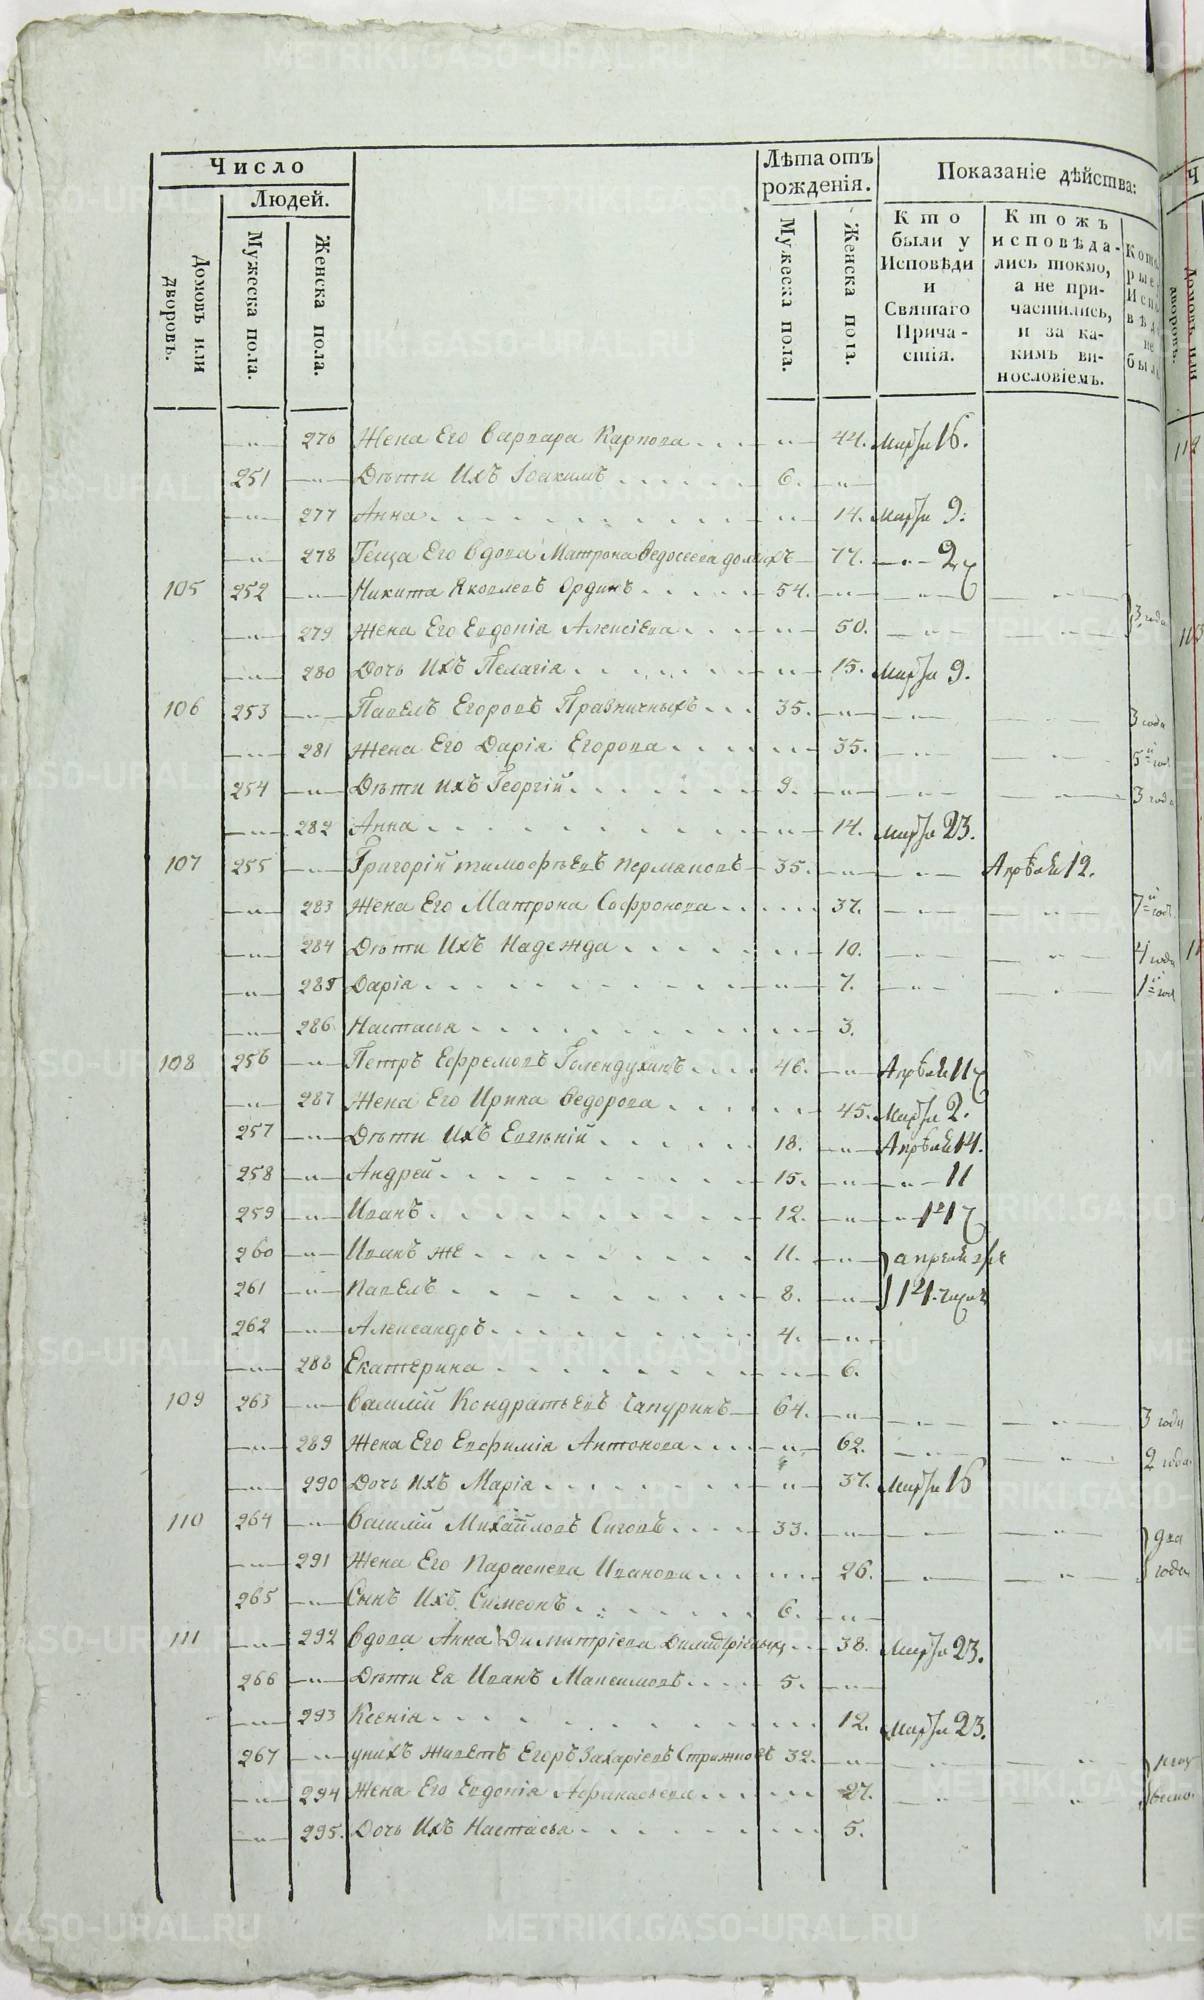 Число
Людей.
Домовъ или дворовъ.
Мужеска пола.
Женска пола.
Лѣта отъ рожденія.
Мужеска пола.
Женска пола.
Показаніе дѣйства:
Кто были у Исповѣди и Святаго Причастія.
Ктожъ исповѣдались токмо, а не причастились, и за какимъ винословіемъ.
276 Жена Его Варвара Карпова 44. Марта 16.
251 Дѣти Ихъ Іоакимъ 6.
277 Анна 14. Марта 9.
278 Теща Его вдова Матрона Ѳедосеева 77. 2
105 252 Никита Яковлевъ Ординъ 54.
279 Жена Его Евдокія Алексіева 50. 3 года
280 Дочь Ихъ Пелагія 15. Марта 9.
106 253 Павелъ Егоровъ Празничныхъ 35. 3 года
281 Жена Его Дарія Егорова 35. 5й год
254 Дѣти Ихъ Георгій 9. 3 года
282 Анна 14. Марта 23.
107 255 Григорій Тимофѣевъ Пермяковъ 35. Апрѣля 12.
283 Жена Его Матрона Софронова 37. 7й год.
284 Дѣти Ихъ Надежда 10. 4 года
285 Дарія 7. 1й год
286 Настасья 3.
108 256 Петръ Ефремовъ Голендухинъ 46. Апрѣля 11
287 Жена Его Ирина Ѳедорова 45. Марта 2.
257 Дѣти Ихъ Евгеній 18. Апрѣля 14.
258 Андрей 15. 11
259 Иванъ 12.
260 Иванъ же 11. апреля
261 Павелъ 8.
262 Александръ 4.
288 Екатерина 6.
109 263 Василій Кондратьевъ Чапуринъ 64. 3 года
289 Жена Его Евфимія Антонова 62. 2 года
290 Дочь Ихъ Марія 37. Марта 16
110 264 Василій Михайловъ Сиговъ 33. два
291 Жена Его Параскева Иванова 26. года
265 Сынъ Ихъ Симеонъ 6.
111 292 Вдова Анна Димитріева 38. Марта 23.
266 Дѣти Ея Иванъ Максимовъ 5.
293 Ксенія 12. Марта 23.
267 у нихъ живетъ Егоръ Захаріевъ Стрижковъ 32.
294 Жена Его Евдокія Афанасьева 27.
295. Дочь Ихъ Настасья 5.
METRIKI.GASO-URAL.RU